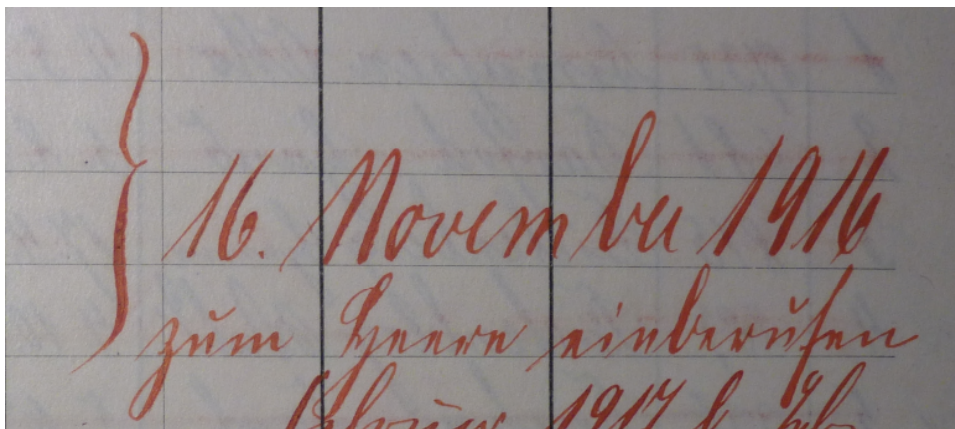 16. November 1916
zum Heere einberufen
Februar 1917